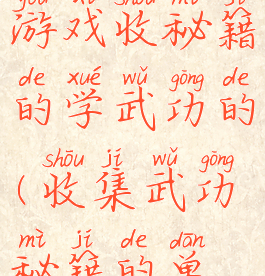 yóu xì shōu mì jí
游戏收秘籍
de xué wǔ gōng de
的学武功的
shōu jí wǔ gōng
(收集武功
mì jí de dān
秘籍的单